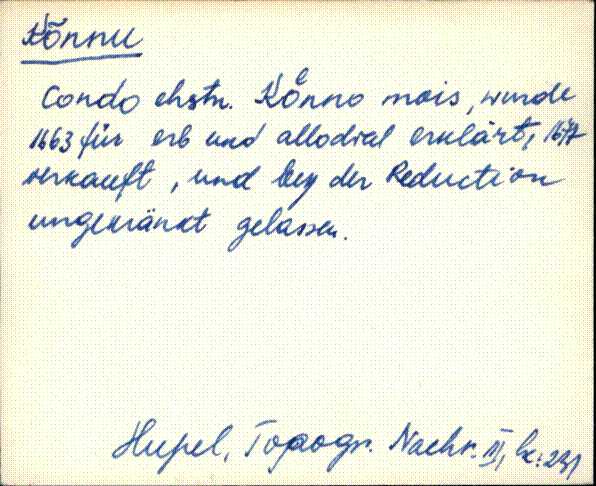 Kõnnu
Condo ehstn. Kånno mois, wurde
1663 für erb und allodial erklärt, 1677
verkauft, und bey der Reduction
ungekränkt gelassen.
Hupel, Topogr. Nachr. III, lk. 231